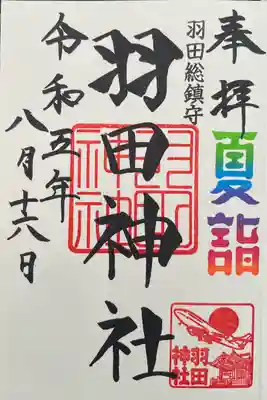 奉拝
夏詣
羽田総鎮守
羽田神社
令和五年
八月十六日
羽田神社
羽田
神社